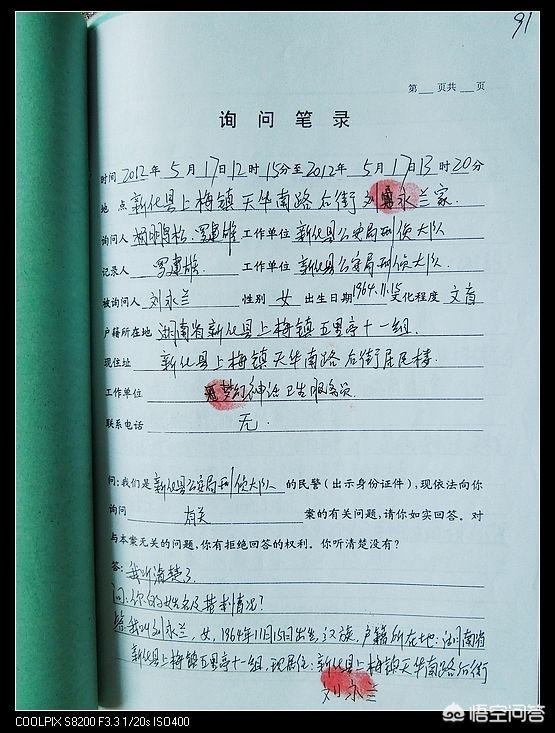 91
第 页共 页
询问笔录
时间 2012年 5月17日12时15分至2012年 5月17日13时20分
地 点 新化县上梅镇天华南路后街刘永兰家.
询问人 罗建雄 工作单位 新化县公安局刑侦大队
记录人 罗建雄. 工作单位 新化县公安局刑侦大队.
被询问人 刘永兰 性别 女 出生日期 1964.11.15 文化程度 文盲
户籍所在地 湖南省新化县上梅镇五里亭十一组.
现住址 新化县上梅镇天华南路后街居民楼.
工作单位 梦幻神话卫生服务员
联系电话 无.
问:我们是 新化县公安局刑侦大队 的民警(出示身份证件),现依法向你
询问 有关 案的有关问题,请你如实回答。对
与本案无关的问题,你有拒绝回答的权利。你听清楚没有?
答: 我听清楚了.
问:你的姓名及基本情况?
答:我叫刘永兰,女,1964年11月15日出生,汉族,户籍所在地:湖南省
新化县上梅镇五里亭十一组,现居住:新化县上梅镇天华南路后街
刘永兰
COOLPIX S8200 F3.3 1/20s ISO400
悟空问答